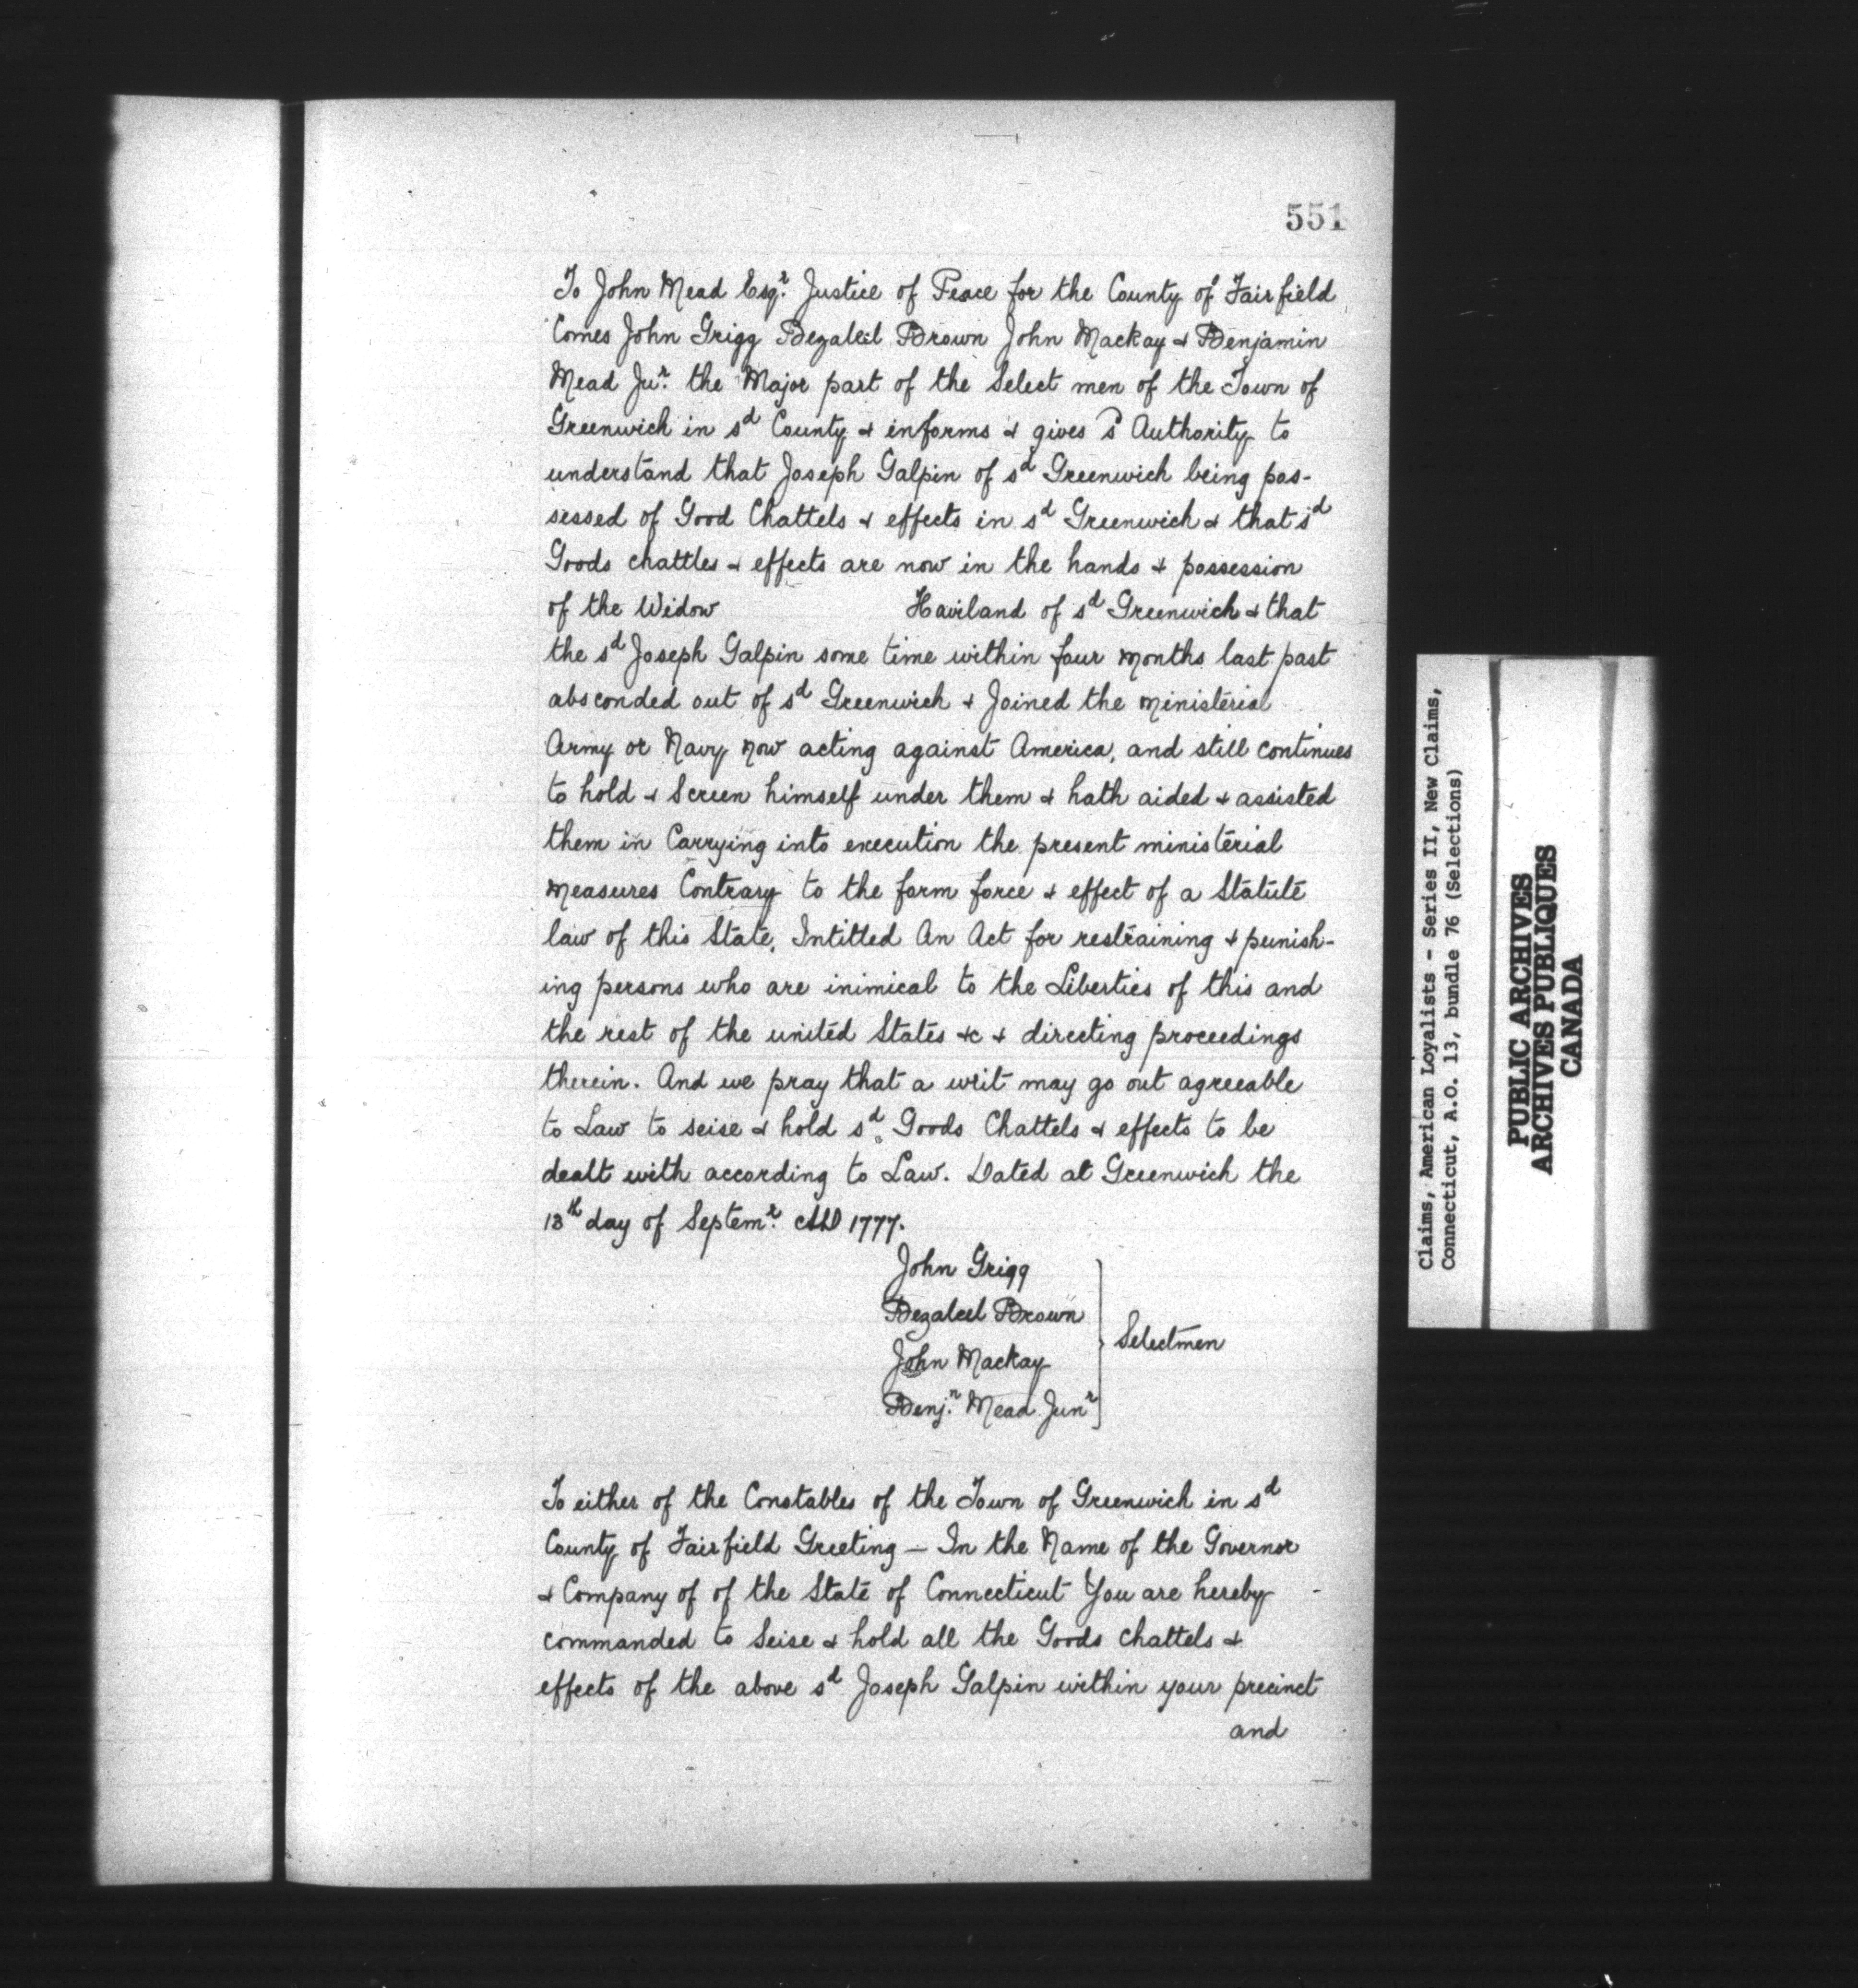 551
To John Mead Esqr. Justice of Peace for the County of Fairfield
Comes John Grigg Bezaleel Brown John Mackay & Benjamin
Mead Jur. the Major part of the Select men of the Town of
Greenwich in sd County & informs & gives s Authority to
understand that Joseph Galpin of sd Greenwich being pos-
sessed of Good Chattels & effects in sd Greenwich & that sd
Goods chattles & effects are now in the hands & possession
of the Widow Haviland of sd Greenwich & that
the sd Joseph Galpin some time within four months last past
absconded out of sd Greenwich & Joined the ministerial
Army or Navy now acting against America, and still continues
to hold & Screen himself under them & hath aided & assisted
them in Carrying into execution the present ministerial
measures Contrary to the form force & effect of a Statute
law of this State, Intitled An Act for restraining & punish-
ing persons who are inimical to the Liberties of this and
the rest of the united States &c & directing proceedings
therein. And we pray that a writ may go out agreeable
to Law to seise & hold sd Goods Chattels & effects to be
dealt with according to Law. Dated at Greenwich the
13th day of Septemr. AD 1777.
John Grigg
Bezaleel Brown
John Mackay
Benjn. Mead Junr
Selectmen
To either of the Constables of the Town of Greenwich in sd
County of Fairfield Greeting — In the Name of the Governor
& Company of of the State of Connecticut You are hereby
commanded to Seise & hold all the Goods chattels &
effects of the above sd Joseph Galpin within your precinct
and
Claims, American Loyalists - Series II, New Claims,
Connecticut, A.O. 13, bundle 76 (Selections)
PUBLIC ARCHIVES
ARCHIVES PUBLIQUES
CANADA